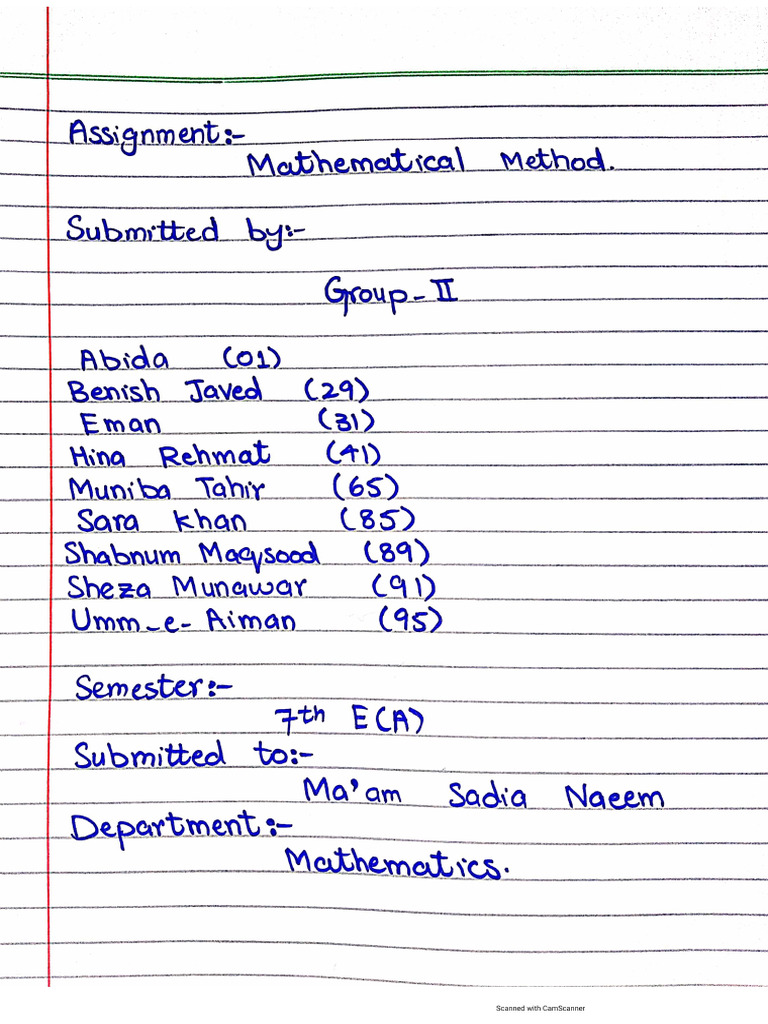 Assignment:-
Mathematical Method.
Submitted by:-
Group-II
Abida (01)
Benish Javed (29)
Eman (31)
Hina Rehmat (41)
Muniba Tahir (65)
Sara Khan (85)
Shabnum Maqsood (89)
Sheza Munawar (91)
Umm-e-Aiman (95)
Semester:-
7th E(A)
Submitted to:-
Ma'am Sadia Naeem
Department:-
Mathematics.
Scanned with CamScanner